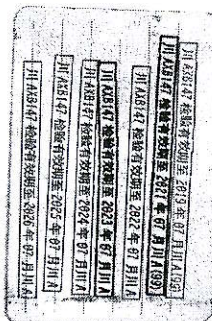 川AXB147 检验有效期至2019年07月川A(90)
川AXB147 检验有效期至2021年07月川A(90)
川AXB147 检验有效期至2022年07月川A
川AXB147 检验有效期至2023年07月川A
川AXB147 检验有效期至 年07月川A
川AXB147 检验有效期至2025年07月川A
川AXB147 检验有效期至2026年07月川A